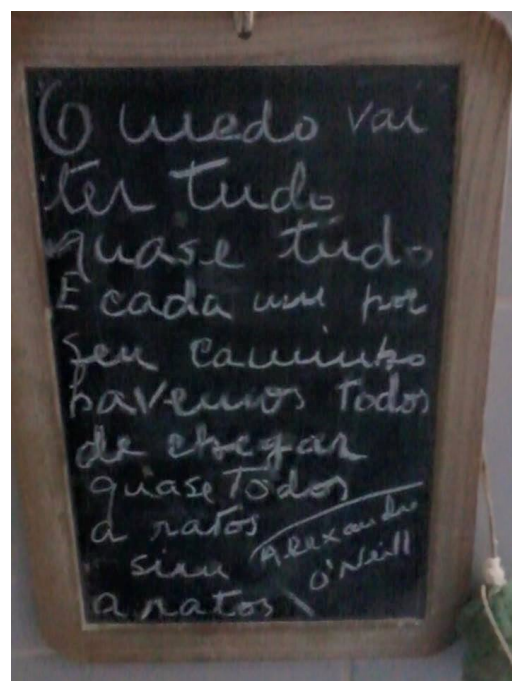 O medo vai
ter tudo
quase tudo
E cada um por
seu caminho
havemos todos
de chegar
quase todos
a ratos
sim
a ratos
Alexandre
O'Neill